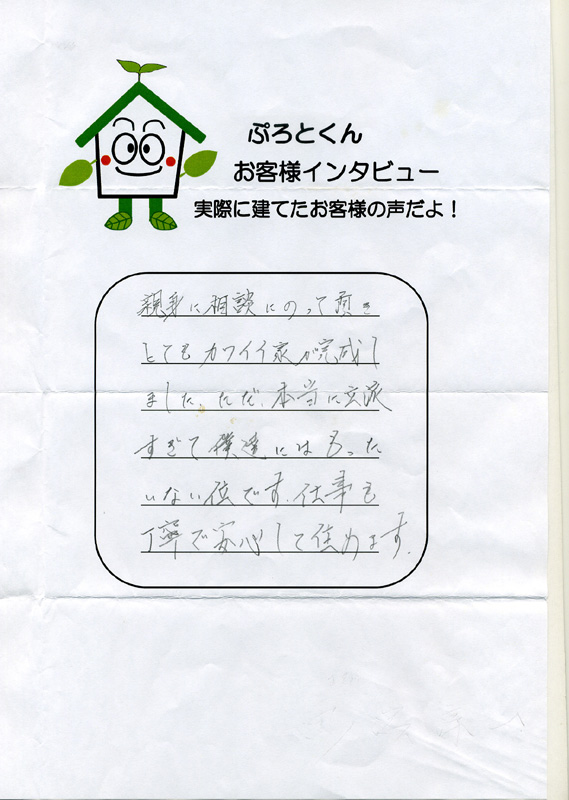 ぷろとくん
お客様インタビュー
実際に建てたお客様の声だよ！
親身に相談にのって頂き
とてもカワイイ家が完成し
ました。ただ、本当に立派
すぎて僕達にはもった
いない位です。仕事も
丁寧で安心して住めます。